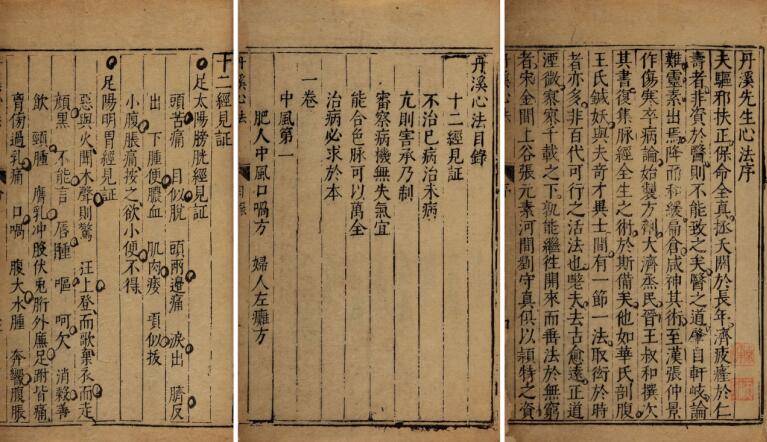 丹溪先生心法序
夫驅邪扶正保命全真拯夭閼於長年濟疲癃於仁
壽者非資於醫則不能致之矣醫之道肇自軒岐論
難靈素出焉降而和緩扁倉咸神其術至漢張仲景
作傷寒卒病論始製方劑大濟烝民晉王叔和撰次
其書復集脈經全生之術於斯備矣他如華氏剖腹
王氏鍼妖與夫奇才異士間有一節一法取衒於時
者亦多非百代可行之活法也嗟夫去古愈遠正道
湮微寥寥千載之下孰能繼往開來而垂法於無窮
者宋金間上谷張元素河間劉守真俱以穎特之資
丹溪心法目錄
十二經見証
不治已病治未病
亢則害承乃制
審察病機無失氣宜
能合色脉可以萬全
治病必求於本
一卷
中風第一
肥人中風口喎方 婦人左癱方
丹溪心法 目錄
十二經見証
足太陽膀胱經見証
頭苦痛 目似脫 頭兩邊痛 淚出 臍反
出 下腫便膿血 肌肉痿 項似拔
小腹脹痛按之欲小便不得
足陽明胃經見証
惡與火聞木聲則驚 汪上登而歌棄衣而走
顏黑 不能言 唇腫 嘔 呵欠 消穀善
飲 頸腫 膺乳冲股伏兔胻外廉足跗皆痛
傍過乳痛 口喎 腹大水腫 奔響腹脹